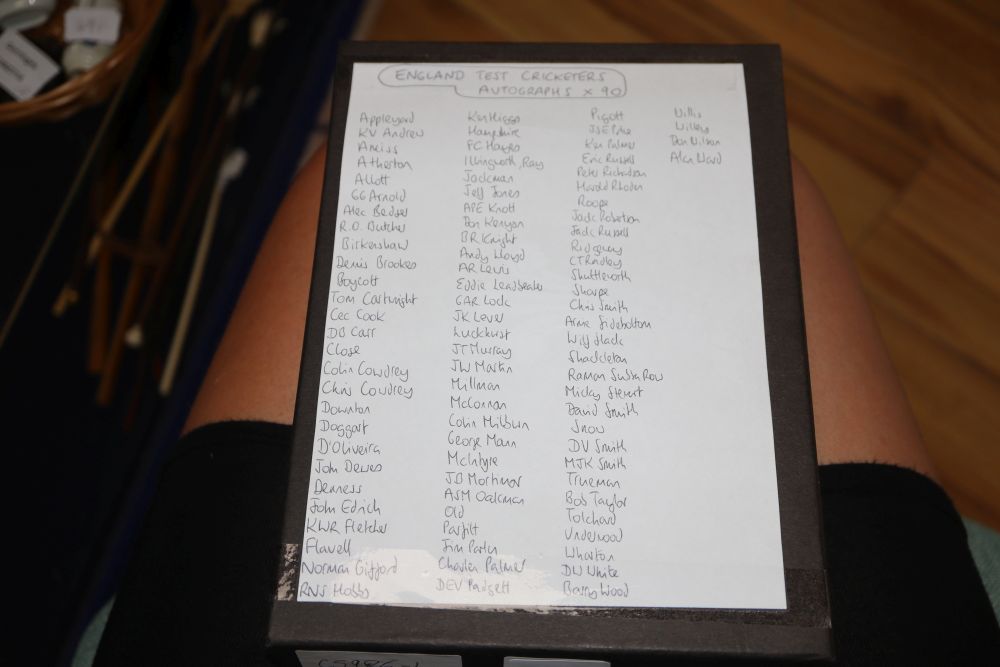 ENGLAND TEST CRICKETERS
AUTOGRAPHS x 90
Appleyard
KV Andrew
Amiss
Atherton
Allott
GG Arnold
Alec Bedser
R.O. Butcher
Birkenshaw
Denis Brookes
Boycott
Tom Cartwright
Cec Cook
DB Carr
Close
Colin Cowdrey
Chris Cowdrey
Downton
Doggart
D'Oliveira
John Dewes
Denness
John Edrich
KWR Fletcher
Flavell
Norman Gifford
RNS Hobbs
Ken Higgs
Hampshire
FC Hayes
Illingworth, Ray
Jackman
Jeff Jones
APE Knott
Don Kenyon
BR Knight
Andy Lloyd
AR Lewis
Eddie Leadbeater
GAR Lock
JK Lever
Luckhurst
JT Murray
JW Martin
Millman
McConnan
Colin Milburn
George Mann
McIntyre
JB Mortimore
ASM Oakman
Old
Parfitt
Jim Parks
Charles Palmer
DEV Padgett
Pigott
JSE Price
Ken Palmer
Eric Russell
Peter Richardson
Harold Rhodes
Roope
Jack Robertson
Jack Russell
Ridgway
CT Radley
Shuttleworth
Sharpe
Chris Smith
Arnie Sidebottom
Wilf Slack
Shackleton
Raman Subba Row
Micky Stewart
David Smith
Snow
DV Smith
MJK Smith
Trueman
Bob Taylor
Tolchard
Underwood
Wharton
DW White
Barry Wood
Willis
Willey
Don Wilson
Alan Ward